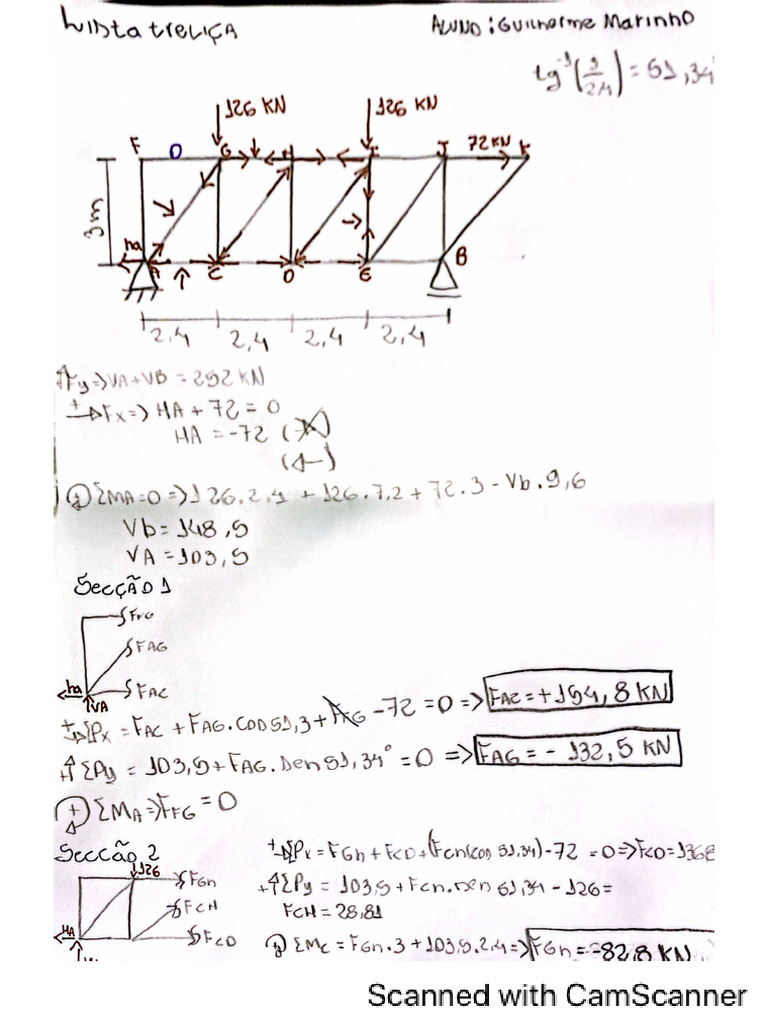 Lista treliça
Aluno: Guilherme Marinho
tg⁻¹(3/2,4) = 51,34
126 KN 126 KN
F 0 G H I J 72 KN K
3m
ha
A C D E B
2,4 2,4 2,4 2,4
↑Fy => VA + VB = 252 KN
+→ Fx => HA + 72 = 0
HA = -72 (→)
(←)
ΣMA=0 => 126.2,4 + 126.7,2 + 72.3 - Vb.9,6
Vb = 148,5
VA = 103,5
Secção 1
FFG
FAG
ha VA FAC
+→ ΣPx = FAC + FAG.cos 51,3 + - 72 = 0 => FAC = +154,8 KN
+↑ ΣPy = 103,5 + FAG.sen 51,34° = 0 => FAG = - 132,5 KN
(+) ΣMA => FFG = 0
Secção 2
126
FGh
FCH
HA FCD
+→ ΣPx = FGh + FCD + (Fcn(cos 51,34) - 72 = 0 => FCD = 136,8
+↑ ΣPy = 103,5 + Fcn.sen 51,34 - 126 =
FCH = 28,81
ΣMc = FGh.3 + 103,5.2,4 => FGh = -82,8 KN
Scanned with CamScanner